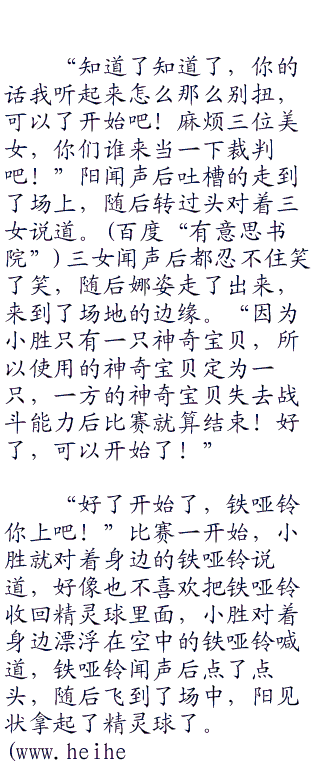 “知道了知道了，你的
话我听起来怎么那么别扭，
可以了开始吧！麻烦三位美
女，你们谁来当一下裁判
吧！”阳闻声后吐槽的走到
了场上，随后转过头对着三
女说道。(百度“有意思书
院”)三女闻声后都忍不住笑
了笑，随后娜姿走了出来，
来到了场地的边缘。“因为
小胜只有一只神奇宝贝，所
以使用的神奇宝贝定为一
只，一方的神奇宝贝失去战
斗能力后比赛就算结束！好
了，可以开始了！”
“好了开始了，铁哑铃
你上吧！”比赛一开始，小
胜就对着身边的铁哑铃说
道，好像也不喜欢把铁哑铃
收回精灵球里面，小胜对着
身边漂浮在空中的铁哑铃喊
道，铁哑铃闻声后点了点
头，随后飞到了场中，阳见
状拿起了精灵球了。
(www.heihe